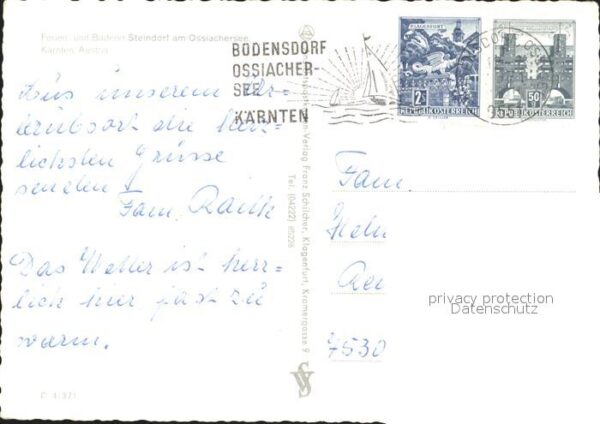 Ferien- und Badeort Steindorf am Ossiachersee
Kärnten, Austria
BODENSDORF
OSSIACHER-
SEE
KÄRNTEN
KLAGENFURT
2
REPUBLIK ÖSTERREICH
50
REPUBLIK ÖSTERREICH
Aus unserem Ur=
laubsort die herz=
lichsten Grüsse
senden
Fam.
Das Wetter ist herr=
lich hier fast zu
warm.
Verlag Franz Schilcher, Klagenfurt, Kramergasse 9
Tel. (04222) 80226
Fam.
7530
privacy protection
Datenschutz